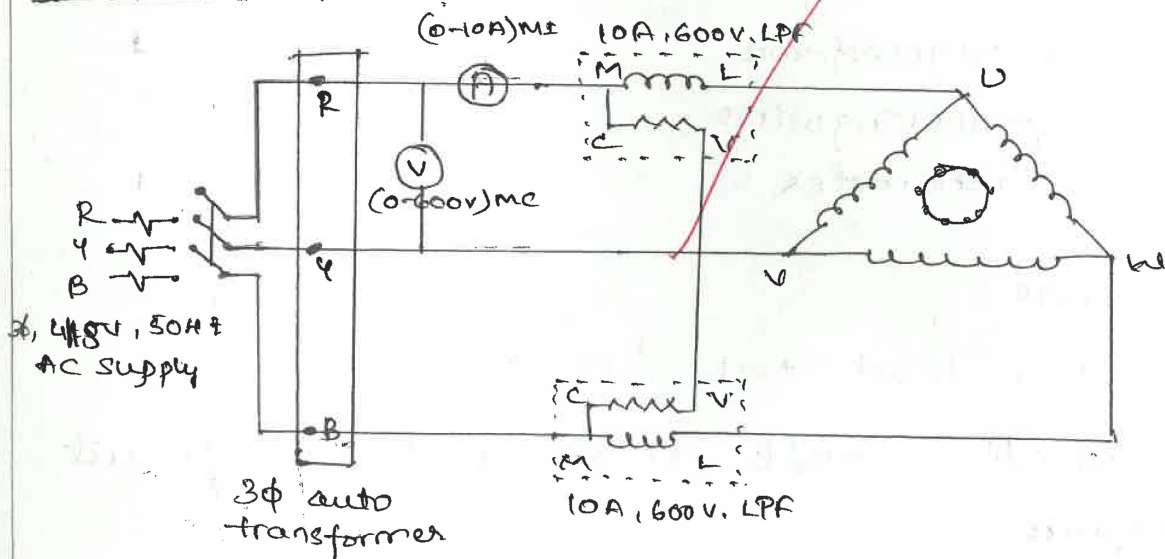 (0-10A)MI
10A, 600V, LPF
M L
C V
U
R
A
V
(0-600V)MC
R
Y
B
Y
V
W
3ϕ, 415V, 50HZ
AC Supply
C V
B
M L
3ϕ auto
transformer
10A, 600V, LPF